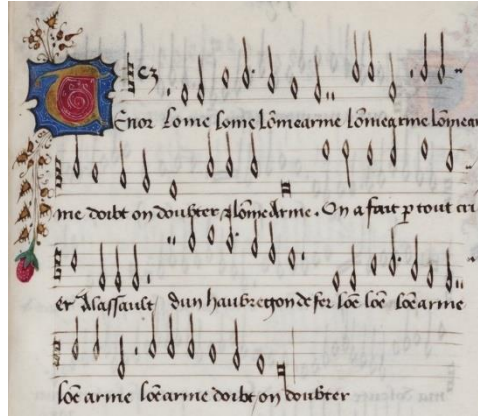 Tenor Lome lome lõmearme lõmearme lõmear
me doibt on doubter Alõmearme. On a fait ꝑ tout cri
er Alassault dun haubregon de fer lõe lõe lõearme
lõe arme lõearme doibt on doubter